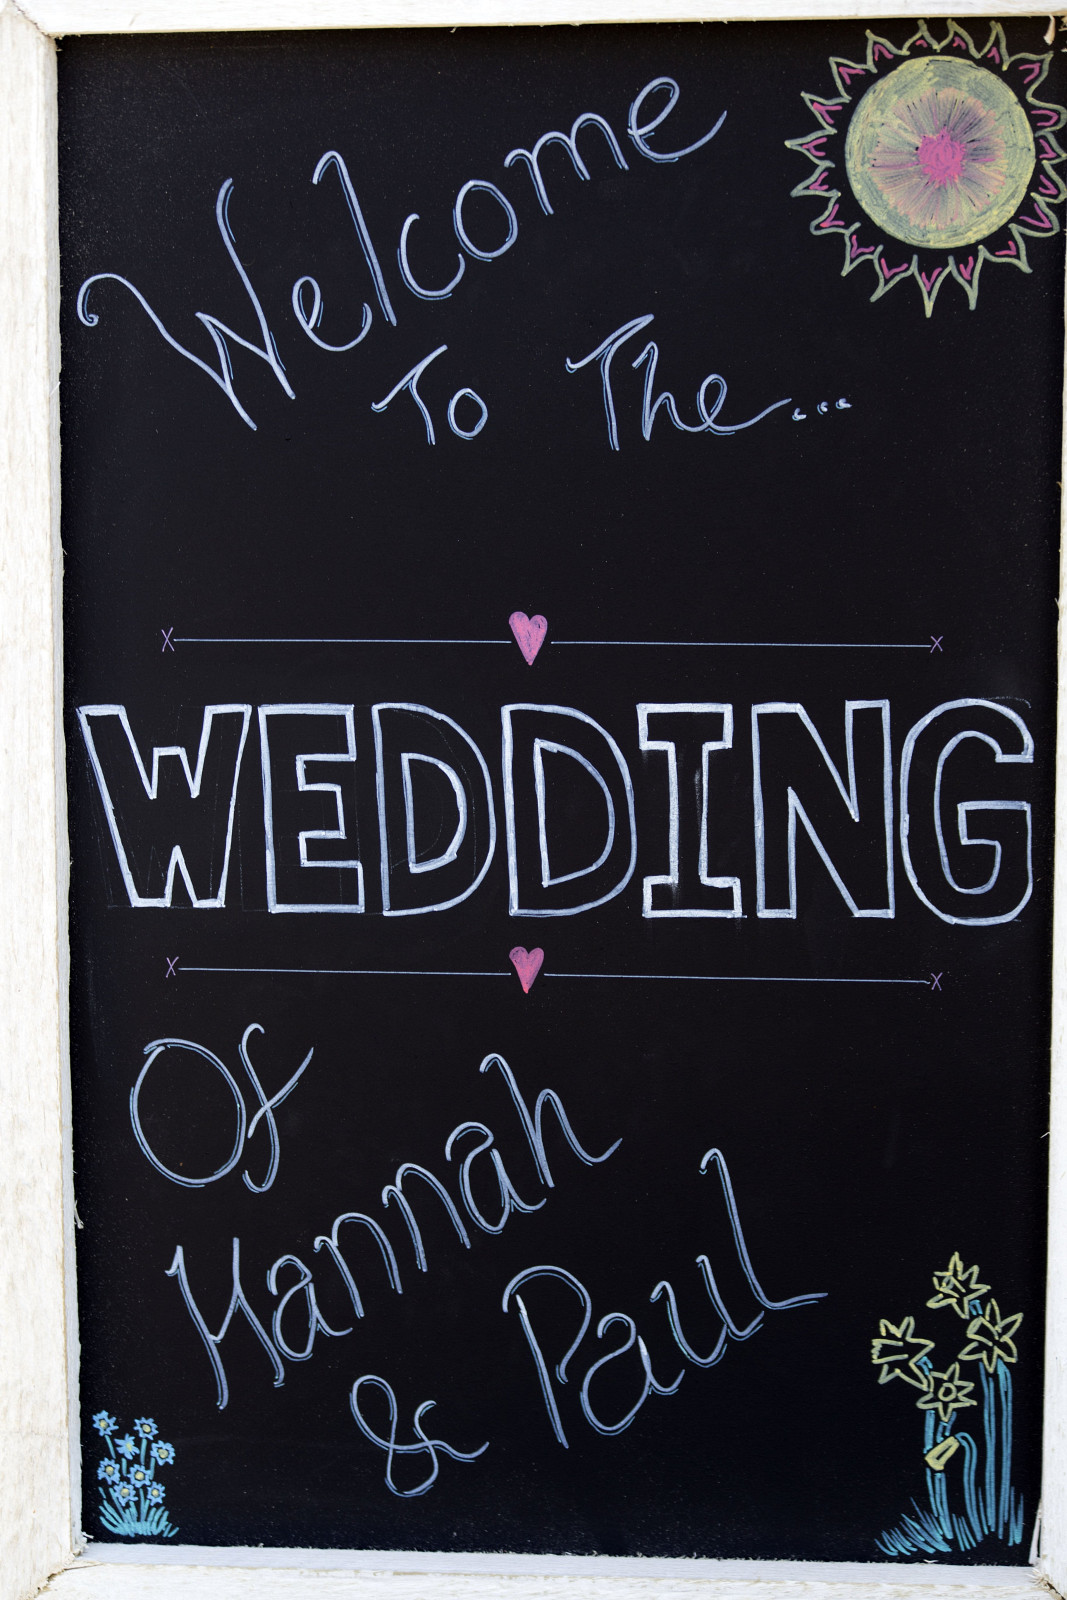 Welcome
To The...
WEDDING
Of
Hannah
& Paul